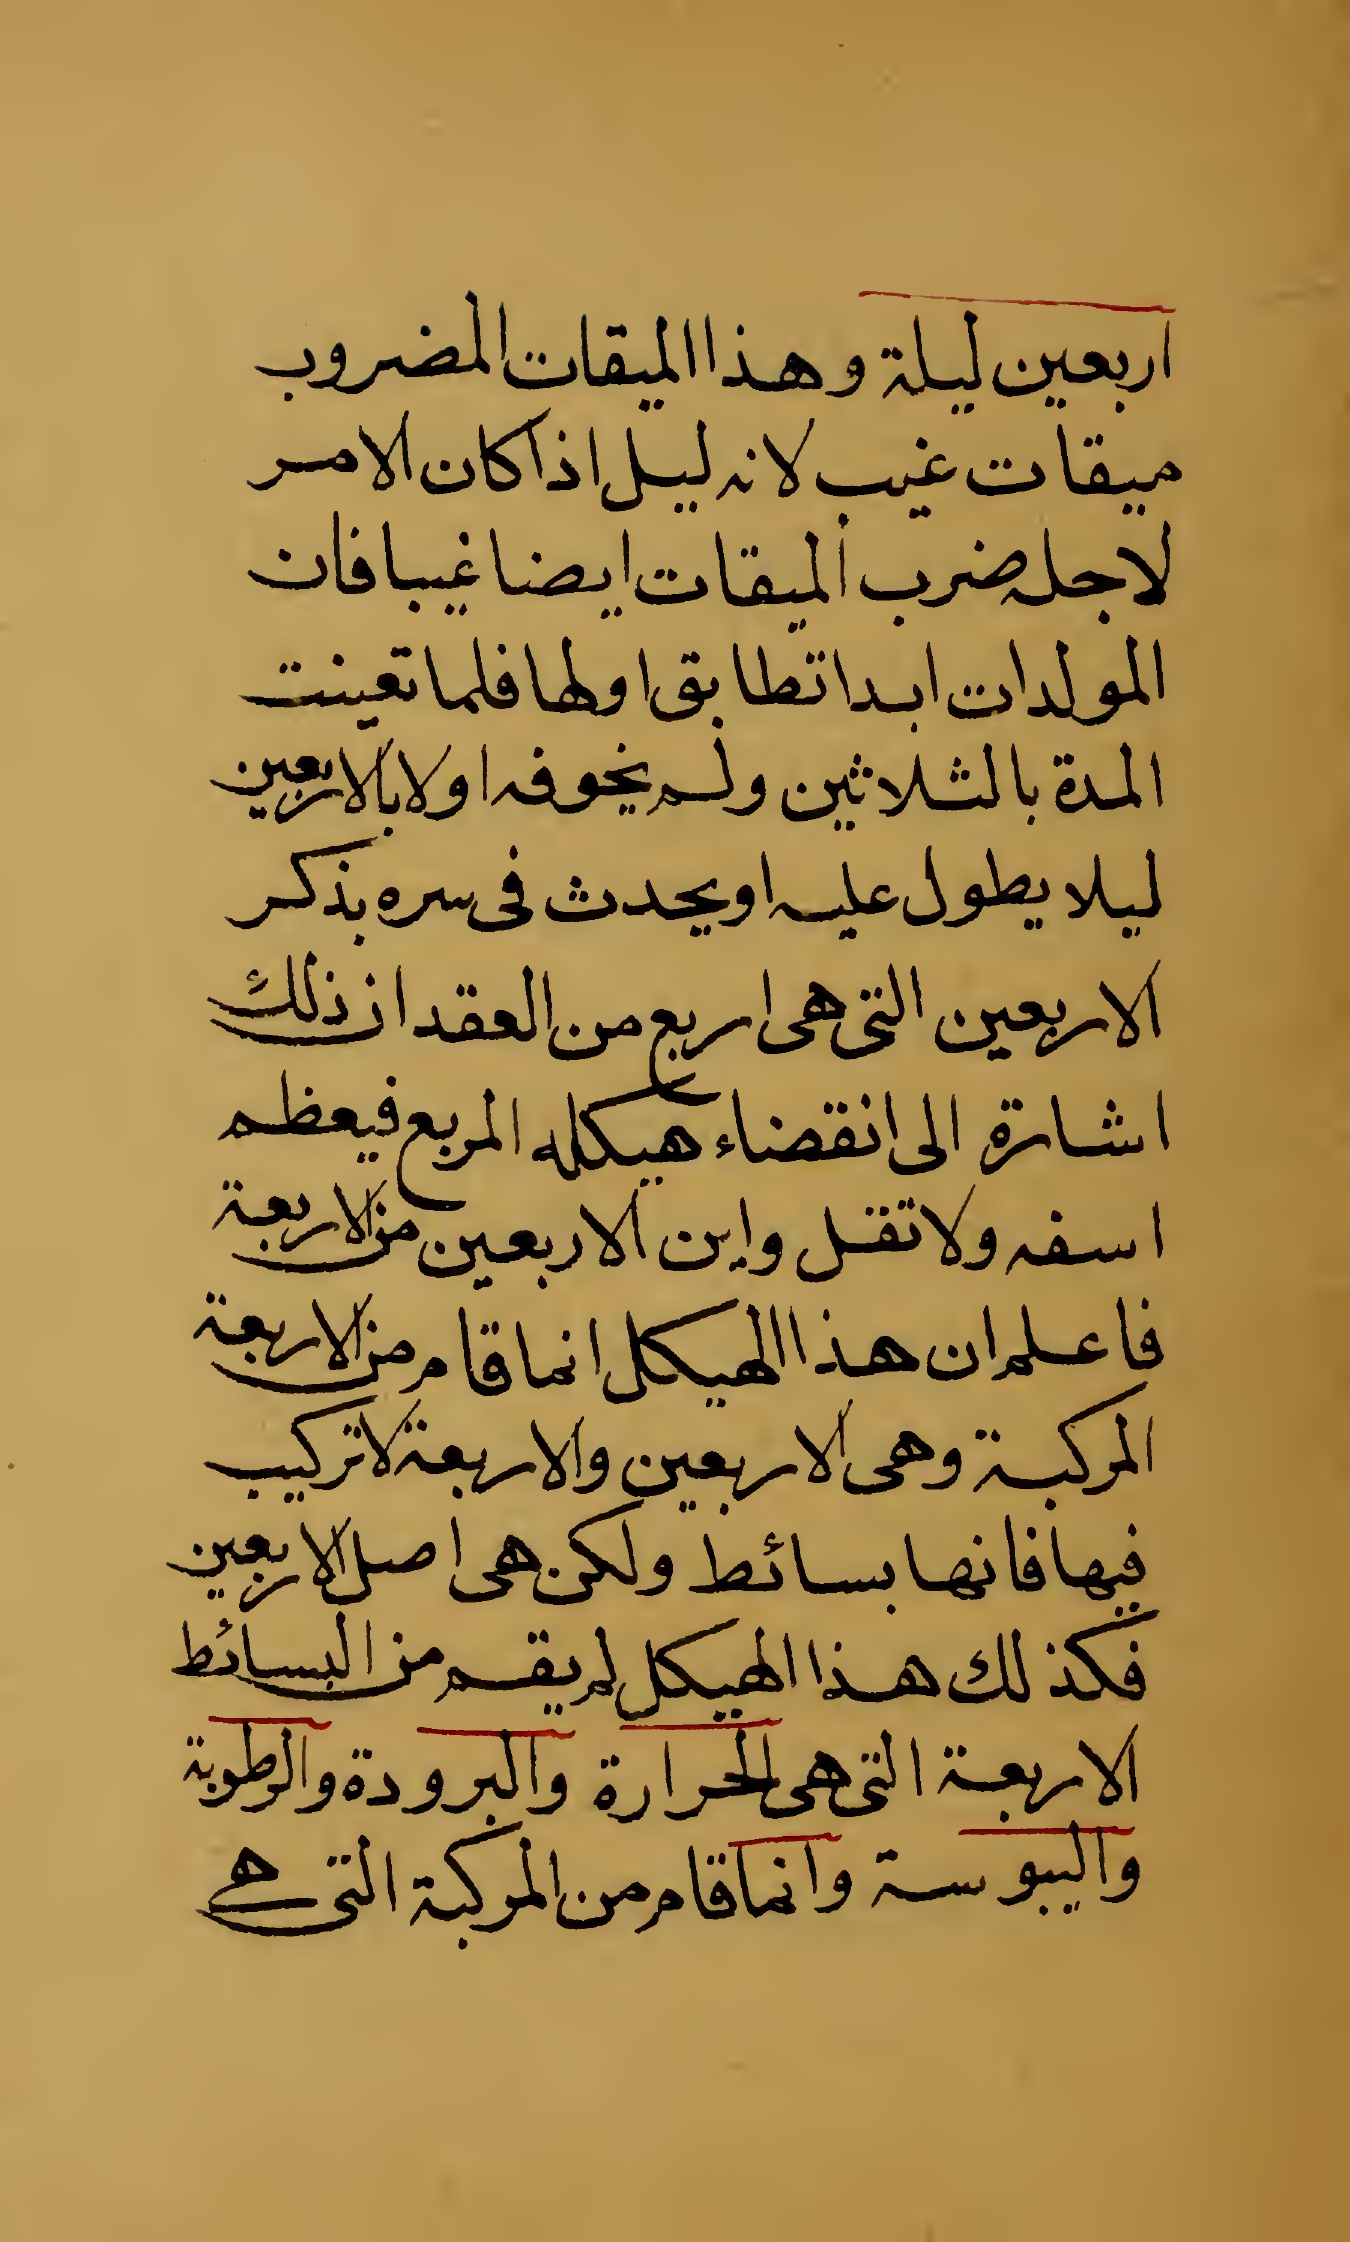 اربعين ليلة وهذا الميقات المضروب
ميقات غيب لانه ليل اذا كان الامر
لاجله ضرب الميقات ايضا غيبا فان
المولدات ابدا تطابق اولها فلما تعينت
المدة بالثلاثين ولم يخوفه اولا بالاربعين
ليلا يطول عليه او يحدث فى سره بذكر
الاربعين التى هى اربع من العقد ان ذلك
اشارة الى انقضاء هيكله المربع فيعظم
اسفه ولا تقل واين الاربعين من الاربعة
فاعلم ان هذا الهيكل انما قام من الاربعة
المركبة وهى الاربعين والاربعة لا تركيب
فيها فانها بسائط ولكن هى اصل الاربعين
فكذلك هذا الهيكل لم يقم من البسائط
الاربعة التى هى الحرارة والبرودة والرطوبة
واليبوسة وانما قام من المركبة التى هے